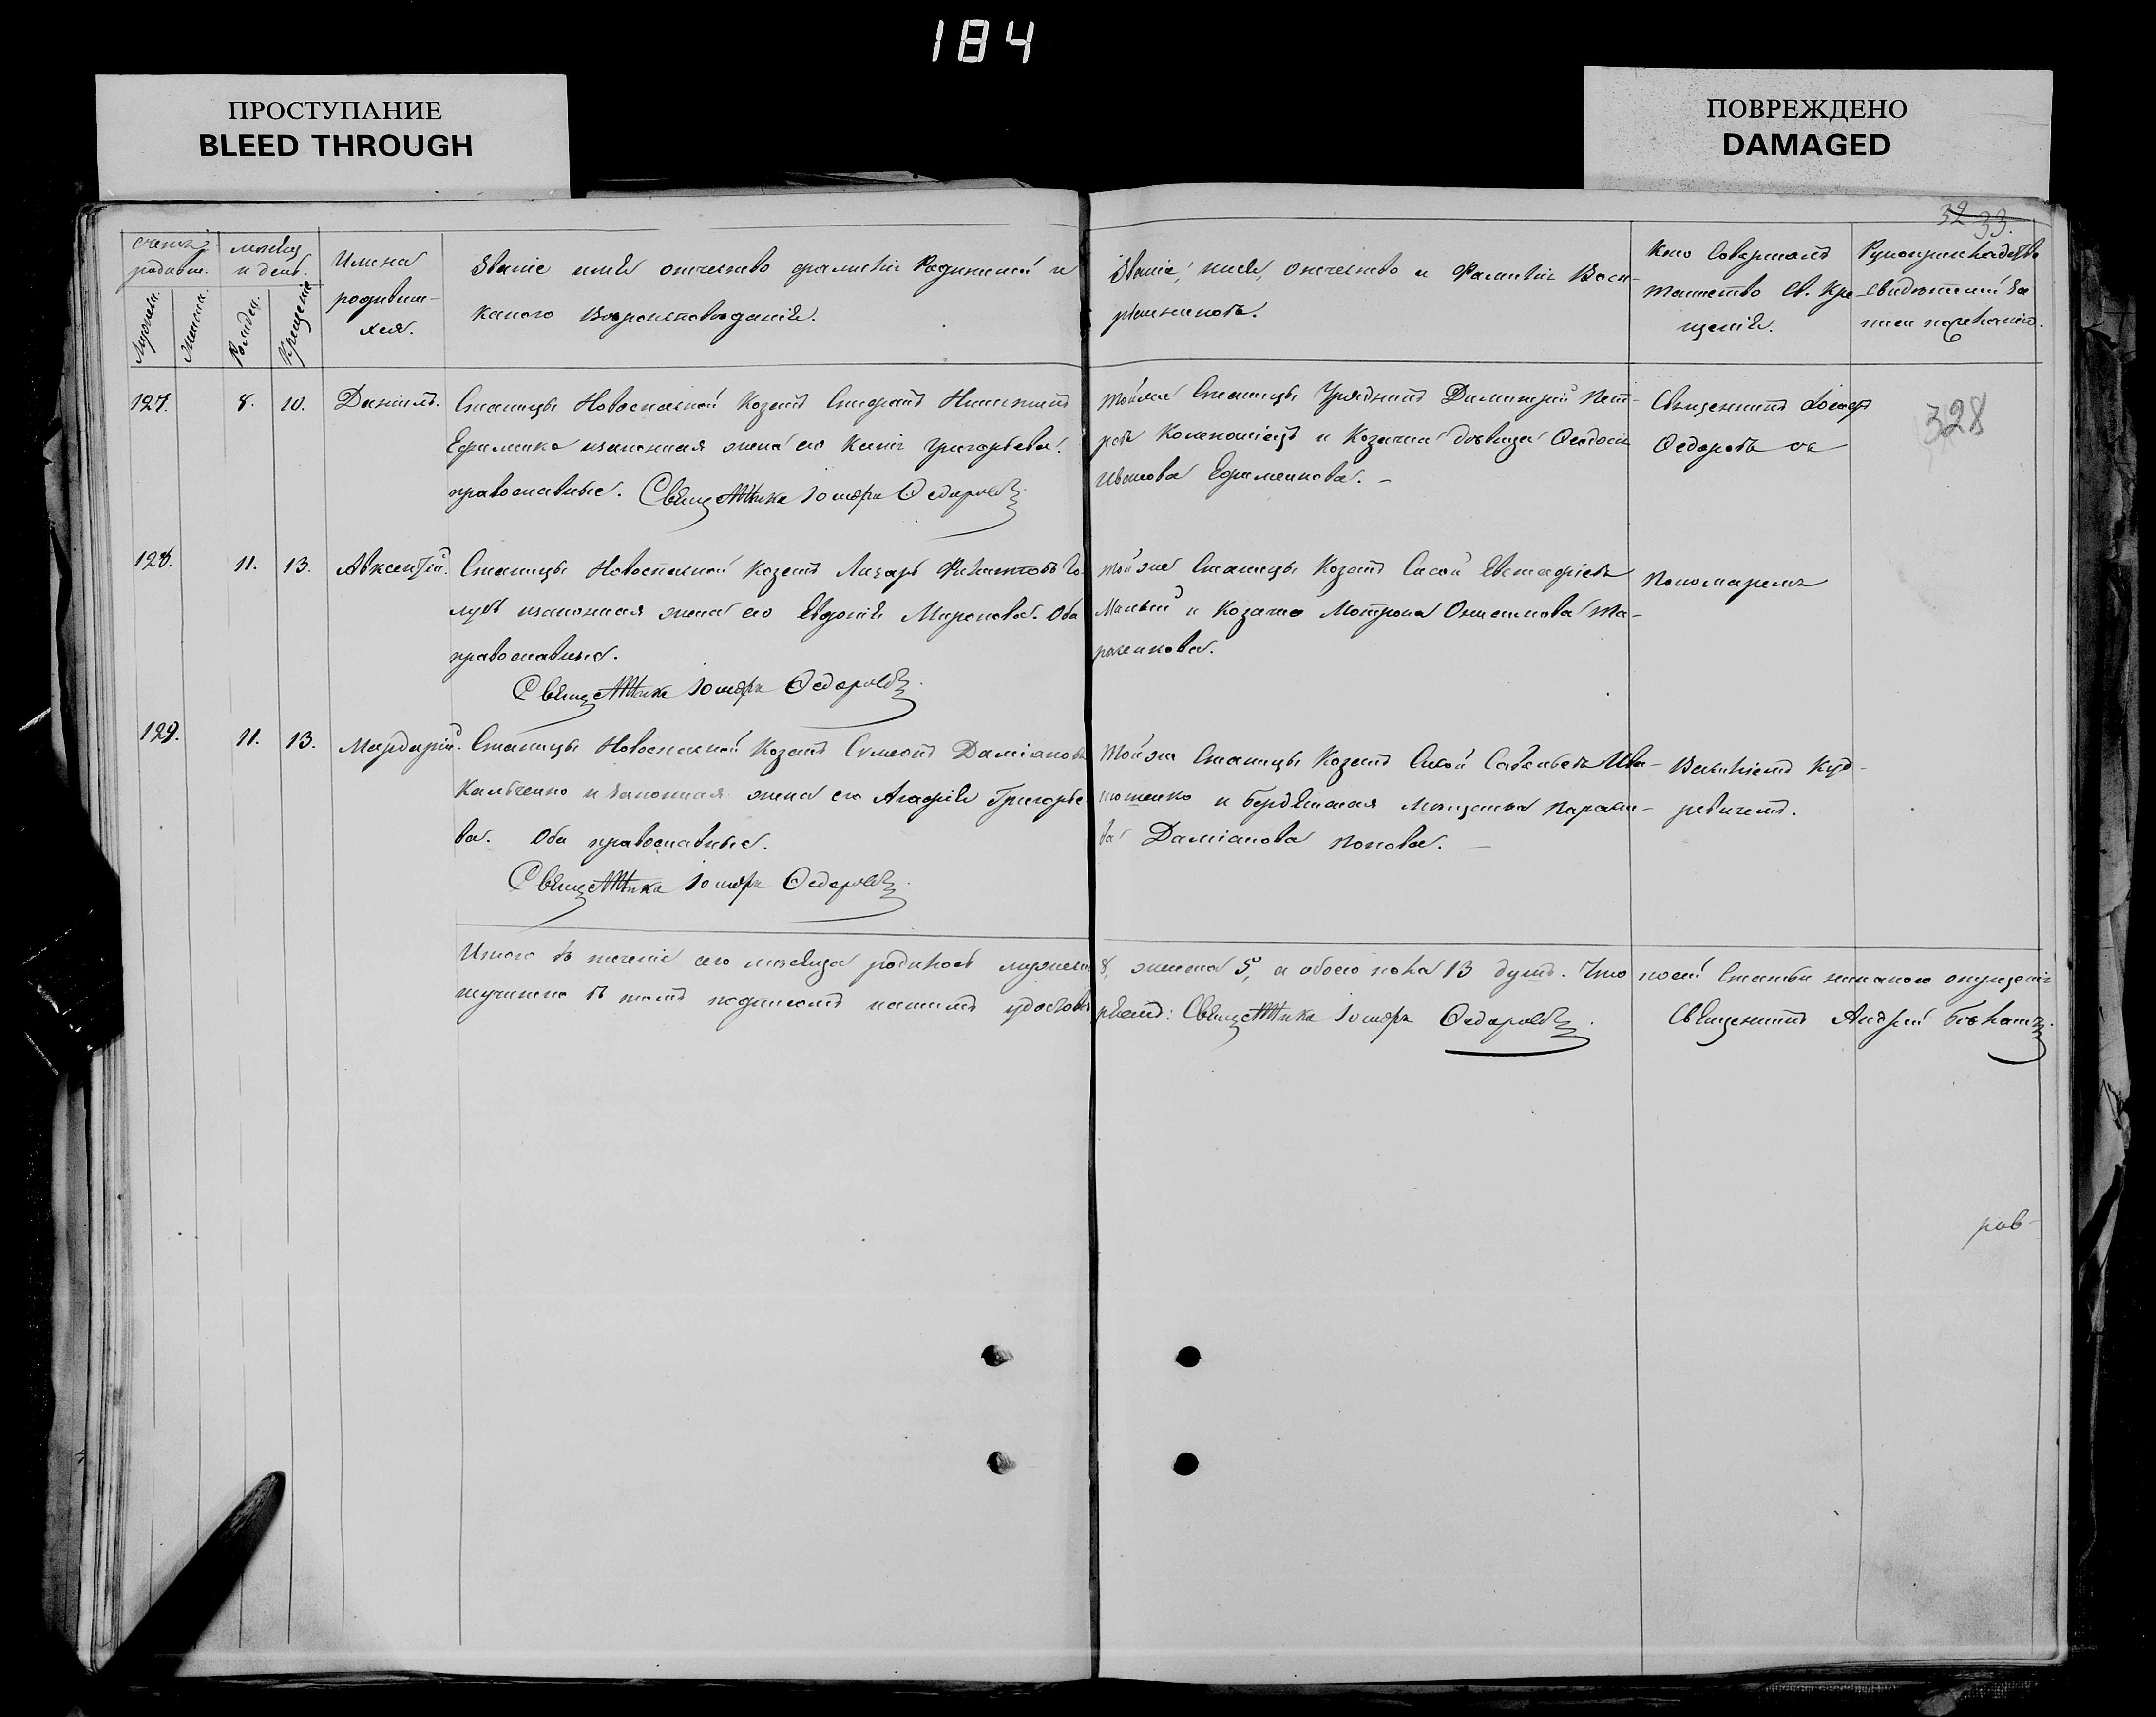 184
ПРОСТУПАНИЕ
BLEED THROUGH
ПОВРЕЖДЕНО
DAMAGED
32 33.
Счетъ родивш.
Мужеска.
Женска.
Мѣсяцъ и день.
Рожден.
Крещенія
Имена
родивши-
хся.
Званіе имя отчество фамилія Родителей и
какого Вѣроисповѣданія.
Званіе, имя, отчество и Фамилія Восп-
ріемниковъ.
Кто Совершалъ
таинство Св. Кре-
щенія.
Рукоприкладство
свидѣтелей за
писи по желанію.
127.
8.
10.
Даніилъ.
Станицы Новоспаской Козакъ Стефанъ Никитинъ
Ефименко и законная жена его Григорьева.
православные. Священникъ Іосифъ Федоровъ
той же Станицы Урядникъ Димитрій Пет-
ровъ Коломоіецъ и Козачка дѣвица Феодосія
Иванова Ефименкова. –
Священникъ Іосифъ
Федоровъ съ
328
128.
11.
13.
Авксентій.
Станицы Новоспаской Козакъ Лазарь Филиповъ Го-
лубъ и законная жена его Евдокія Миронова. Оба
православные.
Священникъ Іосифъ Федоровъ
той же Станицы Козакъ Сисой Евстафіевъ
Малый и Козачка Мотрона Онисимова Та-
расенкова.
Пономаремъ
129.
11.
13.
Мардарій.
Станицы Новоспаской Козакъ Симеонъ Даміановъ
Кальченко и законная жена его Агафія Григорье-
ва. Оба православные.
Священникъ Іосифъ Федоровъ
той же Станицы Козакъ Сисой Савельевъ Ива-
ненко и Бердянская мѣщанка Параске-
ва Даміанова Попова. –
Василіемъ Куд-
ревичемъ.
Итого въ теченіе сего мѣсяца родилось мужеска 8, женска 5, а обоего пола 13 душъ. Что после Статьи никакого опущенія
неучинено въ томъ подписомъ нашимъ удостовѣряемъ: Священникъ Іосифъ Федоровъ. Священникъ Андрей
рав-